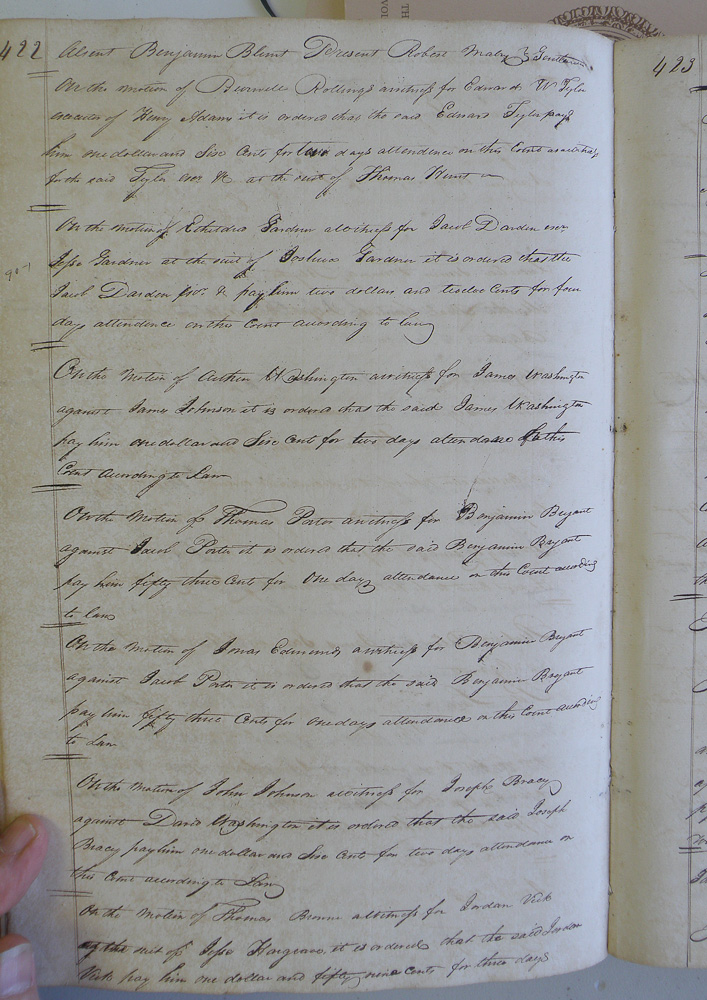 422
Absent Benjamin Blunt Present Robert Mabry Gentlemen
On the motion of Burwell Rollings a witness for Edward W Tyler
executor of Henry Adams it is ordered that the said Edward Tyler pay
him one dollar and Six Cents for two days attendence on this Court as a witness
for the said Tyler Exor &c at the suit of Thomas Hunt
On the motion of Etheldred Gardner a witness for Jacob Darden exor
Jesse Gardner at the suit of Joshua Gardner it is ordered that the
Jacob Darden Exor. & pay him two dollars and twelve Cents for four
days attendence on this Court according to law
On the Motion of Arthur Washington a witness for James Washington
against James Johnson it is ordered that the said James Washington
pay him one dollar and Six Cents for two days attendance on this
Court according to Law
On the Motion of Thomas Porter a witness for Benjamin Bryant
against Jacob Porter it is ordered that the said Benjamin Bryant
pay him fifty three Cents for One days attendance on this Court according
to law
On the Motion of Jonas Edmunds a witness for Benjamin Bryant
against Jacob Porter it is ordered that the said Benjamin Bryant
pay him fifty three Cents for one days attendance on this Court according
to Law
On the Motion of John Johnson a witness for Joseph Bracy
against David Washington it is ordered that the said Joseph
Bracy pay him one dollar and Six Cents for two days attendance on
this Court according to Law
On the Motion of Thomas Browne a witness for Jordan Vick
at the suit of Jesse Hargrave it is ordered that the said Jordan
Vick pay him one dollar and fifty nine Cents for three days
423